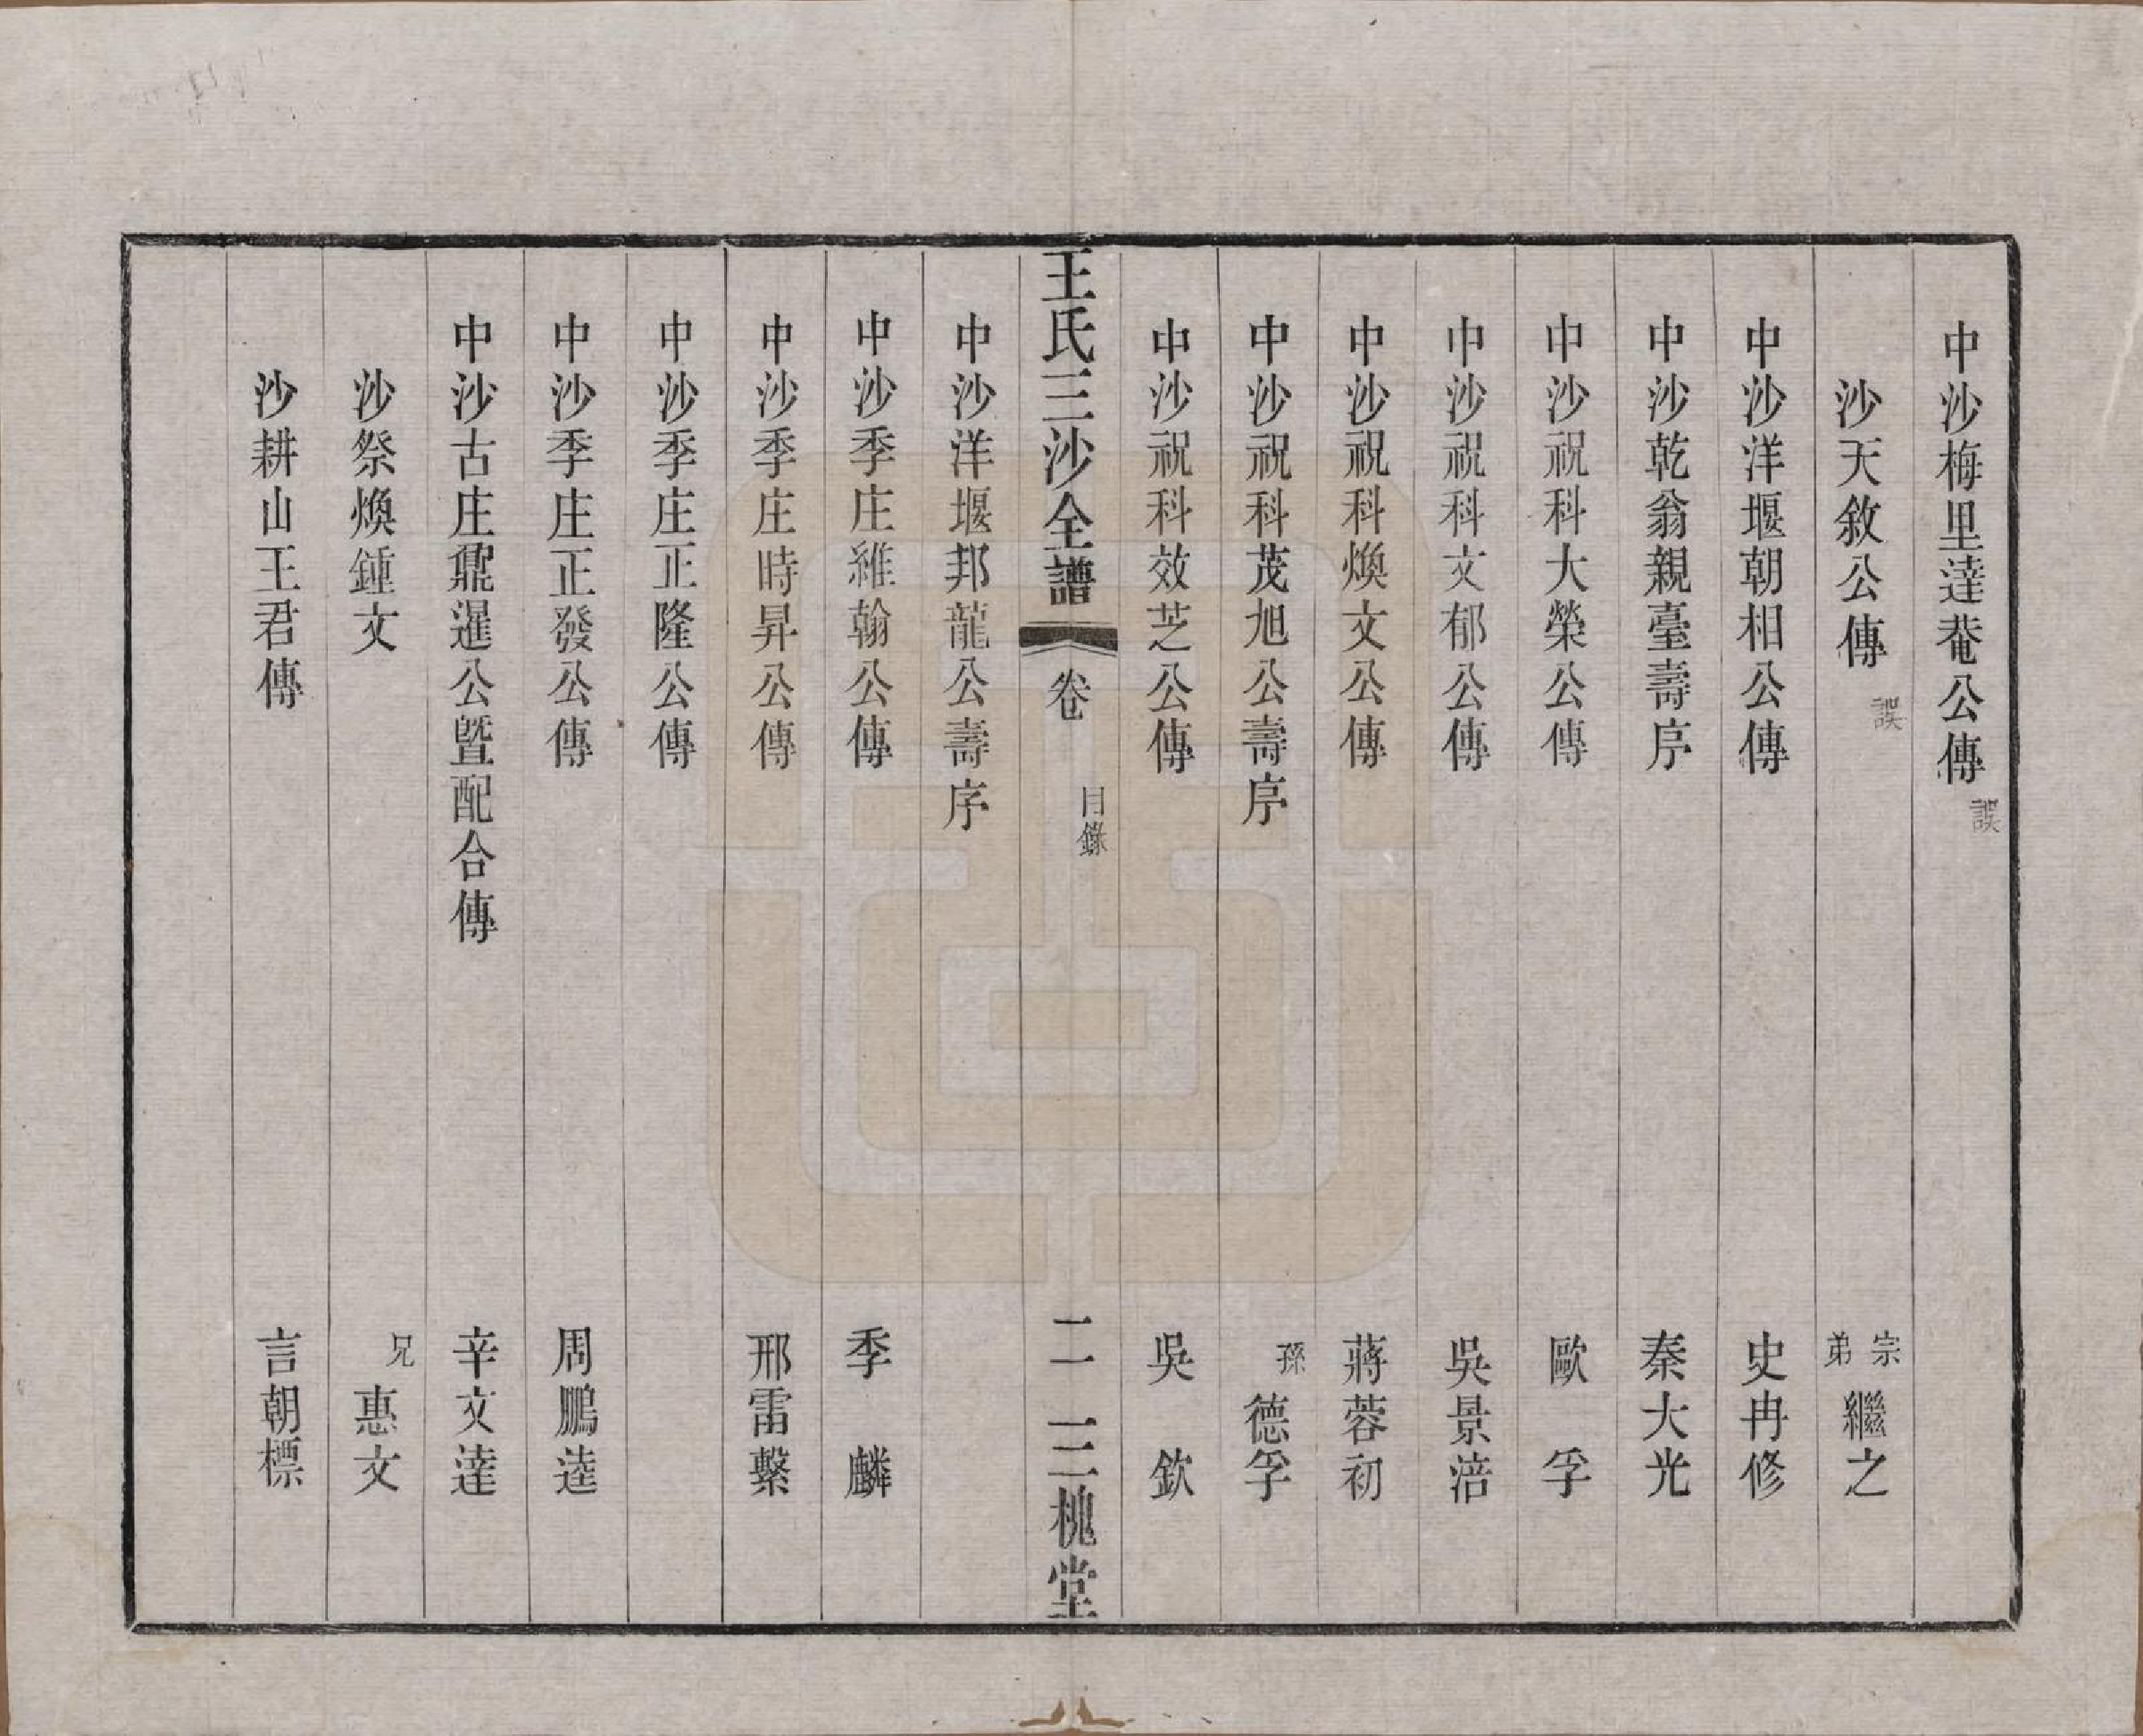 中沙梅里達菴公傳 誤
沙天敘公傳 誤 宗弟 繼之
中沙洋堰朝相公傳 史冉修
中沙乾翁親臺壽序 秦大光
中沙祝科大榮公傳 歐 孚
中沙祝科文郁公傳 吳景涪
中沙祝科煥文公傳 蔣蓉初
中沙祝科茂旭公壽序 孫 德孚
中沙祝科效芝公傳 吳 欽
王氏三沙全譜 卷 目錄 二 三槐堂
中沙洋堰邦龍公壽序
中沙季庄維翰公傳 季 麟
中沙季庄時昇公傳 邢雷繫
中沙季庄正隆公傳
中沙季庄正發公傳 周鵬逵
中沙古庄鼐暹公暨配合傳 辛文達
沙祭煥鍾文 兄 惠文
沙耕山王君傳 言朝標